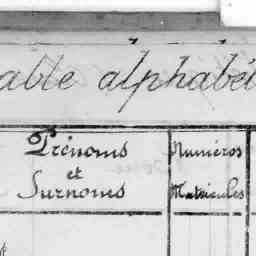 able alphabé
Prénoms Numéros
et
Surnoms Matricules